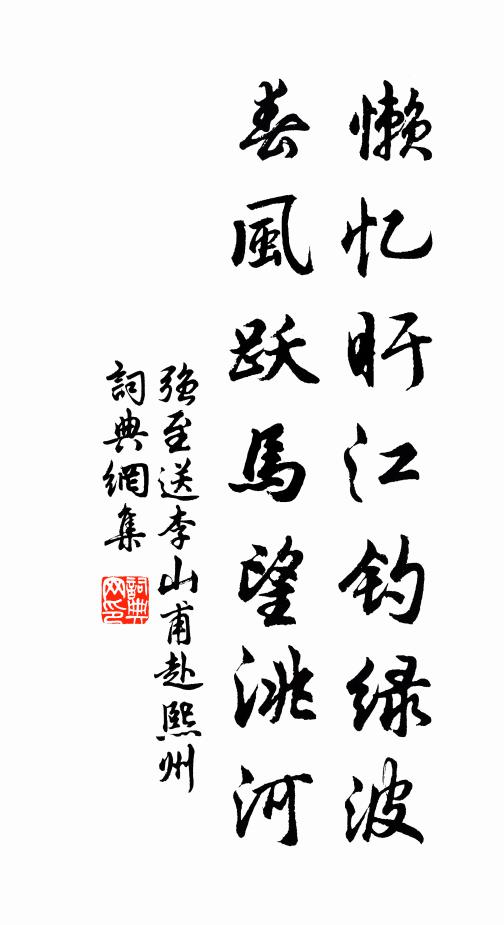 懒忆盱江钓绿波
春風跃馬望洮河
强至送李山甫赴熙州
詞典網集
詞典
网印